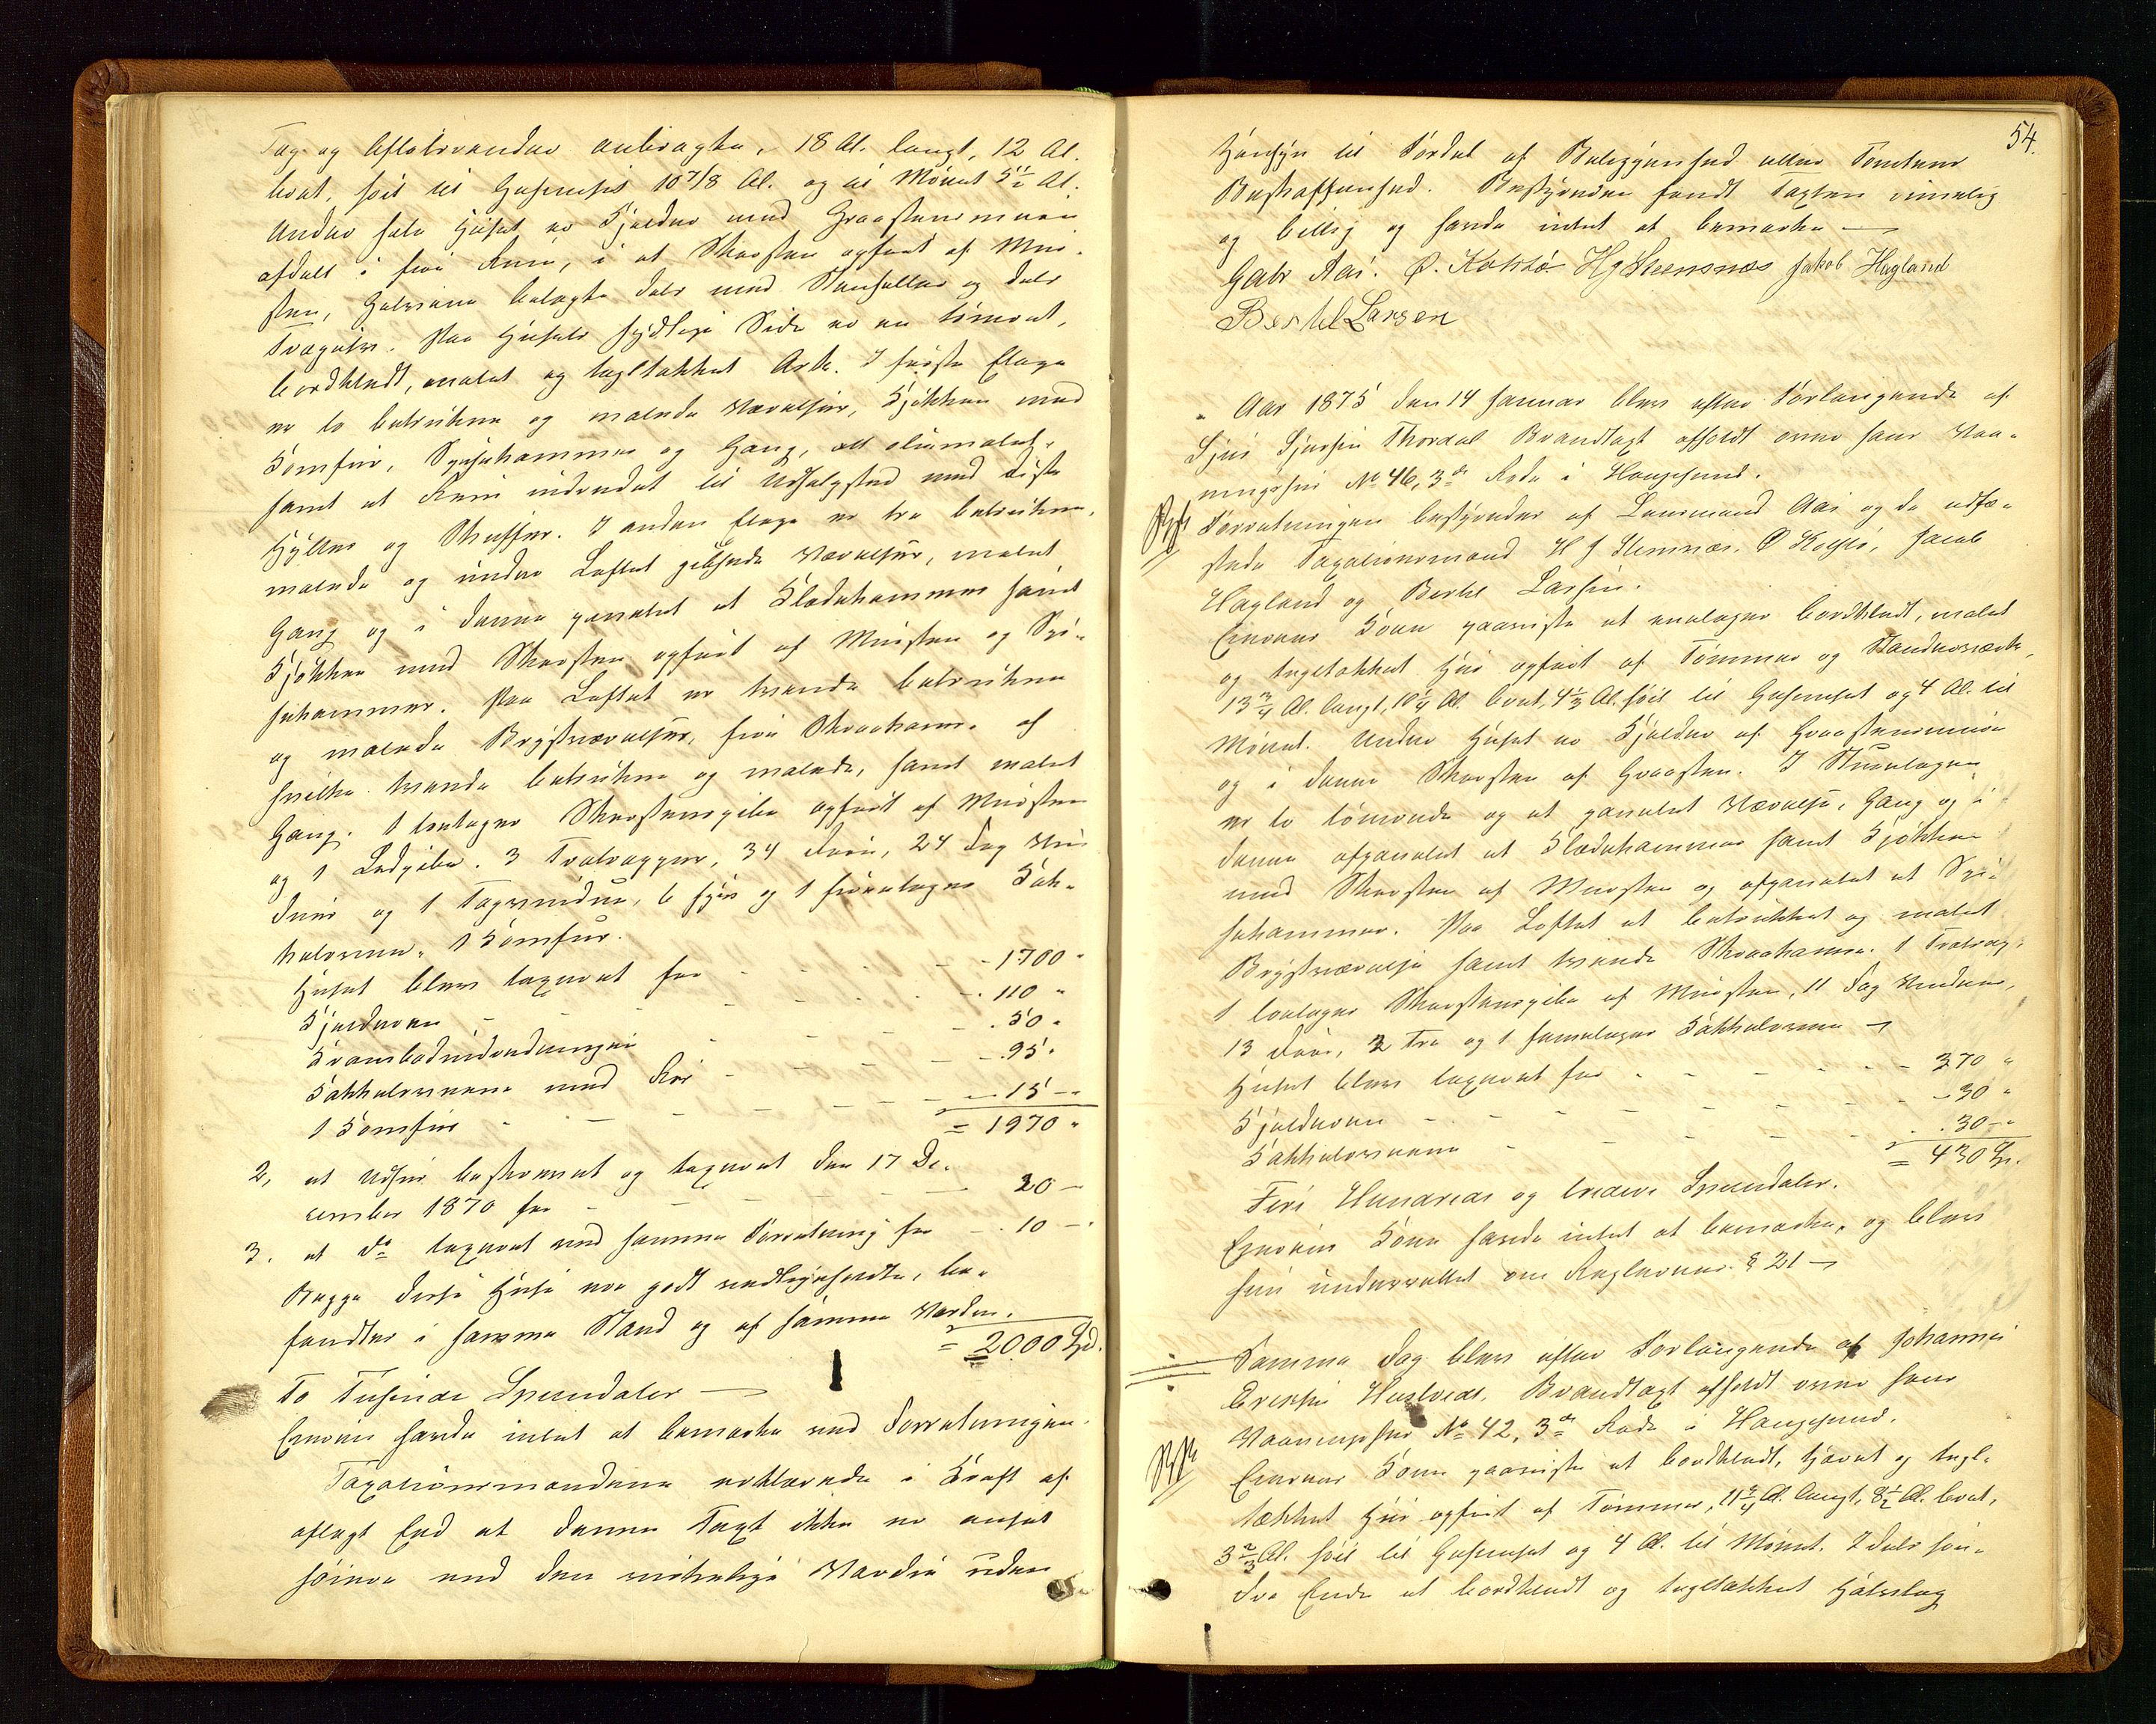 Tag og Afløbsrender anbragte, 18 Al. langt, 12 Al.
bredt, høit til Gesimsset 10 7/8 Al. og til Mønet 5 1/2 Al.
Under hele Huset er Kjelder med Graastensmuur
afdelt i fire Rum, i et Skorsten opført af Mur-
sten, Gulvene belagte dels med Stenheller og dels
Trægulv. Paa Husets sydlige Side er en tømret,
bordklædt, malet og tegltækket Ark. I første Etage
er to betrukne og malede Værelser, Kjøkken med
Komfur, Spisekammer og Gang, alt oliemalet,
samt et Rum indredet til Udsalgsted med Diske
Hylder og Skuffer. I anden Etage er tre betrukne,
malede og under Loftet gibsede Værelser, malet
Gang og i denne panelet et Klædekammer samt
Kjøkken med Skorsten opført af Mursten og Spi-
sekammer. Paa Loftet er tvende betrukne
og malede Brystværelser, fire Skraakam. af
hvilke tvende betrukne og malede, samt malet
Gang. 1 toetages Skorstenspibe opført af Mursten
og 1 Ledpibe. 3 Trætrapper, 34 Døre, 24 Fag Vin-
duer og 1 Tagvindue, 6 syv og 1 fireetages Kak-
kelovne, 1 Komfur.
Huset blev taxeret for - - - 1700 "
Kjelderen - - - 110 "
Krambodindredningen - - 50 "
Kakkelovnene med Rør - - 95 "
1 Komfur - - - 15 -
= 1970 "
2, et Udhus beskrevet og taxeret den 17 De-
cember 1870 for - - - 20 -
3. et do taxeret ved samme Forretning for - 10 -
Begge disse Huse var godt vedligeholdte, be-
fandtes i samme Stand og af samme Værdi.
= 2000 Spd.
To Tusinde Speciedaler
Eieren havde intet at bemærke ved Forretningen.
Taxationsmændene erklærede i Kraft af
aflagt Eed at denne Taxt ikke er ansat
høiere end den virkelige Værdie uden
54.
Hensyn til Fordel af Beliggenhed eller Tomtens
Beskaffenhed. Bestyreren fandt Taxten rimelig
og billig og havde intet at bemærke
Gabr Aas. Ø. Kolstø H J Steensnæs Jakob Hagland
Bertel Larsen
Aar 1875 den 14 Januar blev efter Forlangende af
Thordal Brandtaxt afholdt over hans Vaa-
ningshus No 46, 3de Rode i Haugesund.
Forretningen bestyredes af Lensmand Aas og de udfæ-
stede Taxationsmænd H J Steensnæs, Ø Kolstø, Jacob
Hagland og Bertel Larsen.
Eieren Kone paaviste et enetages bordklædt, malet
og tegltækket Hus opført af Tømmer og Standerværk,
13 3/4 Al. langt, 10 1/4 Al. bredt, 4 1/3 Al. høit til Gesimsset og 4 Al. til
Mønet. Under Huset er Kjelder af Graastensmuur
og i denne Skorsten af Graasten. I Stueetagen
er to tømrede og et panelet Værelse, Gang og i
denne afpanelet et Klædekammer samt Kjøkken
med Skorsten af Mursten og afpanelet et Spi-
sekammer. Paa Loftet et betrukket og malet
Brystværelse samt tvende Skraakamre. 1 Trætrap.
1 toetages Skorstenspibe af Mursten, 11 Fag Vinduer,
13 Døre, 2 tre og 1 femetages Kakkelovne
Huset blev taxeret for - - - 370 "
Kjelderen - - - 30 "
Kakkelovnene - - - 30 -
= 430 Sp.
Fire Hundrede og tredive Speciedaler.
Eierens Kone havde intet at bemærke, og blev
hun underrettet om Reglernes § 21
Samme Dag blev efter Forlangende af Johannes
Huslvedt, Brandtaxt afholdt over hans
Vaaningshus No 42, 3de Rode i Haugesund.
Eierens Kone paaviste et bordklædt, tjæret og tegl-
tækket Hus opført af Tømmer, 11 3/4 Al. langt, 8 1/2 Al. bredt,
3 2/3 Al. høit til Gesimsset og 4 Al. til Mønet. I dets søn-
dre Ende et bordklædt og tegltækket Halvtag